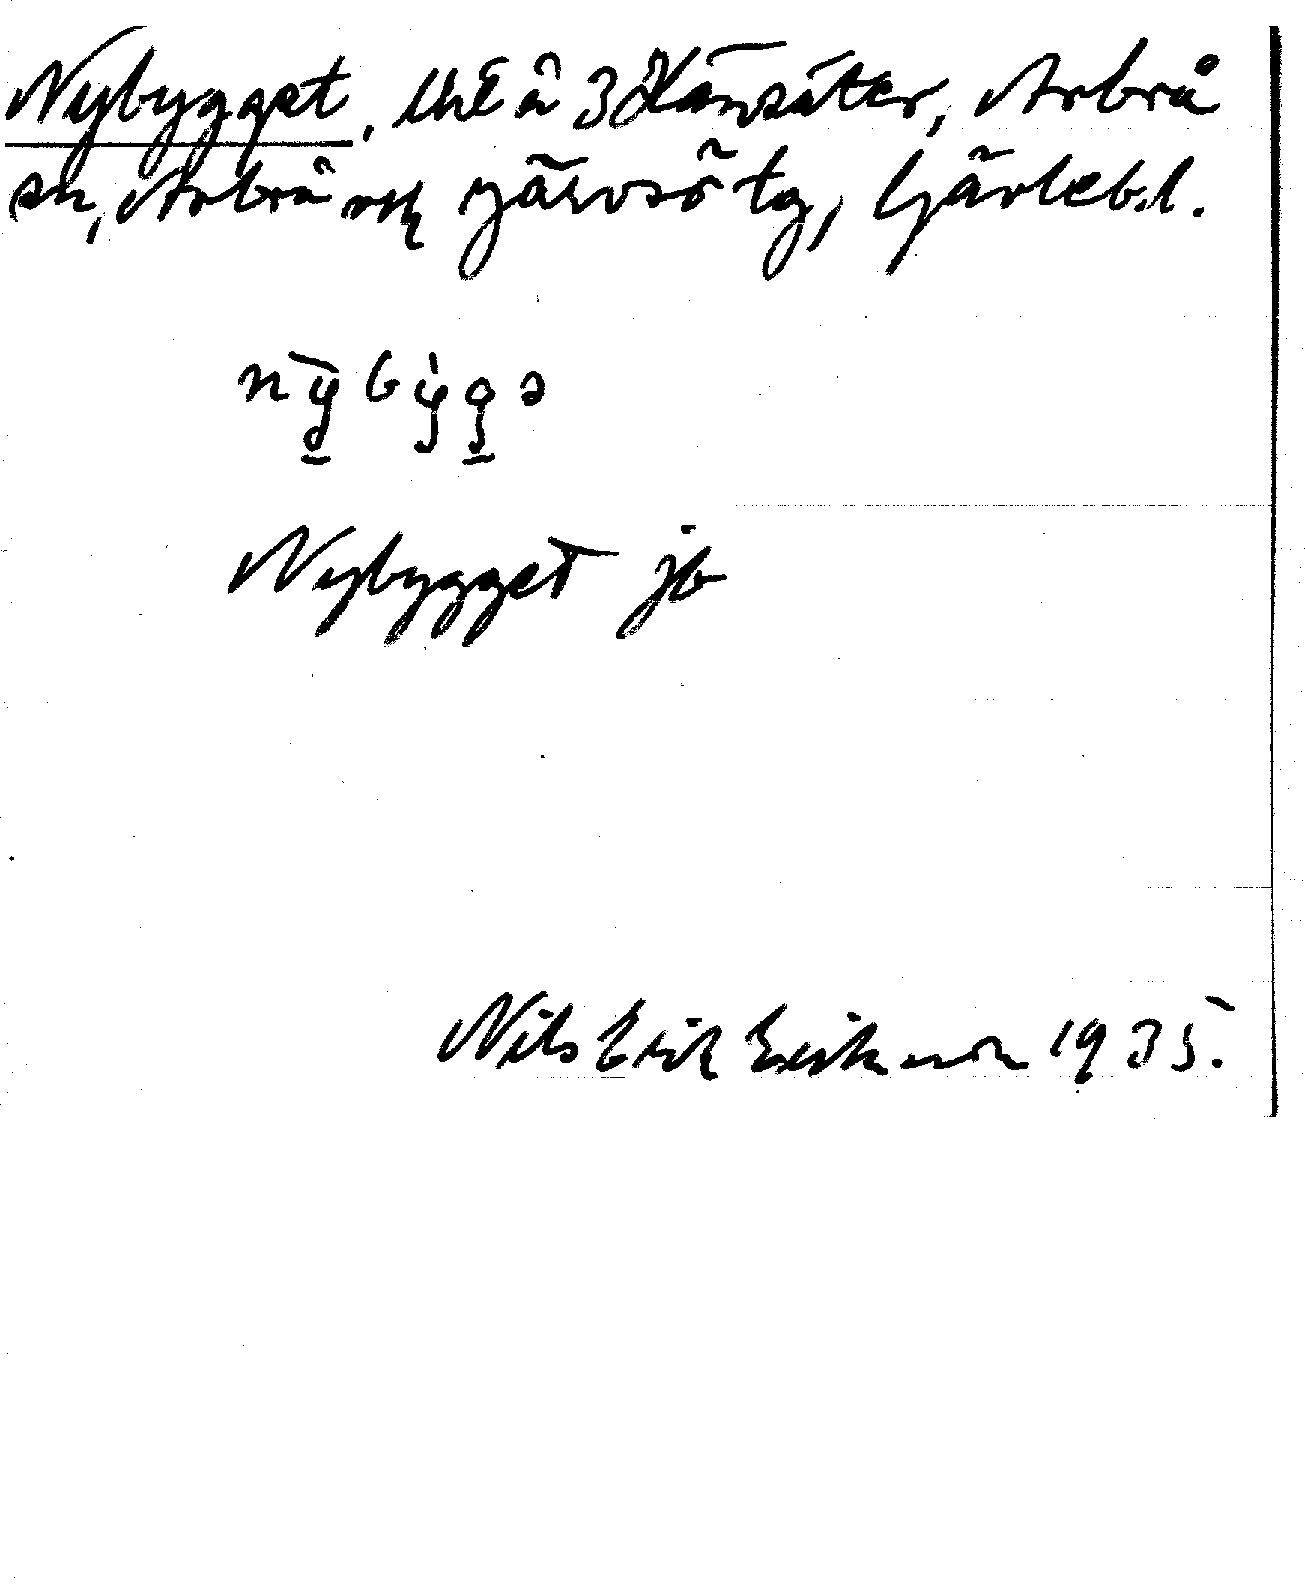 Nybygget, lht å 3 Känsäter, Arbrå
sn, Arbrå och Järvsö tg, Gävleb.l.
nybygə
Nybygget jb
Nils Erik Eriksson 1935.